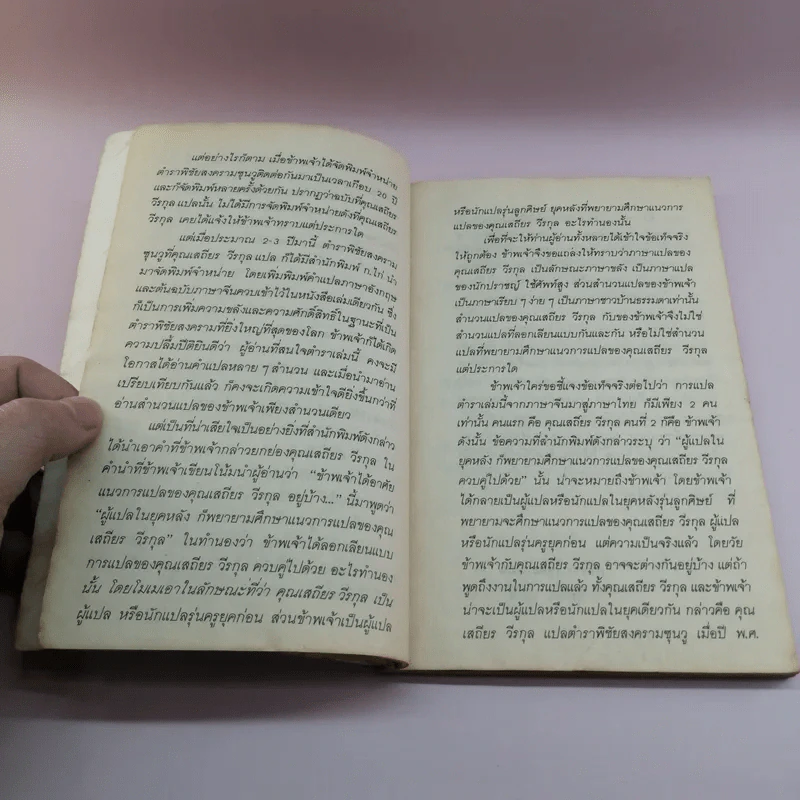 แต่อย่างไรก็ตาม เมื่อข้าพเจ้าได้จัดพิมพ์จำหน่าย
ตำราพิชัยสงครามซุนวูติดต่อกันมาเป็นเวลาเกือบ 20 ปี
และก็จัดพิมพ์หลายครั้งด้วยกัน ปรากฏว่าฉบับที่คุณเสถียร
วีรกุล แปลนั้น ไม่ได้มีการจัดพิมพ์จำหน่ายดังที่คุณเสถียร
วีรกุล เคยได้แจ้งให้ข้าพเจ้าทราบแต่ประการใด
แต่เมื่อประมาณ 2-3 ปีมานี้ ตำราพิชัยสงคราม
ซุนวูที่คุณเสถียร วีรกุล แปล ก็ได้มีสำนักพิมพ์ ก.ไก่ นำ
มาจัดพิมพ์จำหน่าย โดยเพิ่มพิมพ์คำแปลภาษาอังกฤษ
และต้นฉบับภาษาจีนควบเข้าไว้ในหนังสือเล่มเดียวกัน ซึ่ง
ก็เป็นการเพิ่มความขลังและความศักดิ์สิทธิ์ในฐานะที่เป็น
ตำราพิชัยสงครามที่ยิ่งใหญ่ที่สุดของโลก ข้าพเจ้าก็ได้เกิด
ความปลื้มปีติยินดีว่า ผู้อ่านที่สนใจตำราเล่มนี้ คงจะมี
โอกาสได้อ่านคำแปลหลาย ๆ สำนวน และเมื่อนำมาอ่าน
เปรียบเทียบกันแล้ว ก็คงจะเกิดความเข้าใจดียิ่งขึ้นกว่าที่
อ่านสำนวนแปลของข้าพเจ้าเพียงสำนวนเดียว
แต่เป็นที่น่าเสียใจเป็นอย่างยิ่งที่สำนักพิมพ์ดังกล่าว
ได้นำเอาคำที่ข้าพเจ้ากล่าวยกย่องคุณเสถียร วีรกุล ใน
คำนำที่ข้าพเจ้าเขียนโน้มนำผู้อ่านว่า “ข้าพเจ้าได้อาศัย
แนวการแปลของคุณเสถียร วีรกุล อยู่บ้าง...” นี้มาพูดว่า
“ผู้แปลในยุคหลัง ก็พยายามศึกษาแนวการแปลของคุณ
เสถียร วีรกุล” ในทำนองว่า ข้าพเจ้าได้ลอกเลียนแบบ
การแปลของคุณเสถียร วีรกุล ควบคู่ไปด้วย อะไรทำนอง
นั้น โดยโมเมเอาในลักษณะที่ว่า คุณเสถียร วีรกุล เป็น
ผู้แปล หรือนักแปลรุ่นครูยุคก่อน ส่วนข้าพเจ้าเป็นผู้แปล
หรือนักแปลรุ่นลูกศิษย์ ยุคหลังที่พยายามศึกษาแนวการ
แปลของคุณเสถียร วีรกุล อะไรทำนองนั้น
เพื่อที่จะให้ท่านผู้อ่านทั้งหลายได้เข้าใจข้อเท็จจริง
ให้ถูกต้อง ข้าพเจ้าจึงขอแถลงให้ทราบว่าภาษาแปลของ
คุณเสถียร วีรกุล เป็นลักษณะภาษาขลัง เป็นภาษาแปล
ของนักปราชญ์ ใช้ศัพท์สูง ส่วนสำนวนแปลของข้าพเจ้า
เป็นภาษาเรียบ ๆ ง่าย ๆ เป็นภาษาชาวบ้านธรรมดาเท่านั้น
สำนวนแปลของคุณเสถียร วีรกุล กับของข้าพเจ้าจึงไม่ใช่
สำนวนแปลที่ลอกเลียนแบบกันและกัน หรือไม่ใช่สำนวน
แปลที่พยายามศึกษาแนวการแปลของคุณเสถียร วีรกุล
แต่ประการใด
ข้าพเจ้าใคร่ขอชี้แจงข้อเท็จจริงต่อไปว่า การแปล
ตำราเล่มนี้จากภาษาจีนมาสู่ภาษาไทย ก็มีเพียง 2 คน
เท่านั้น คนแรก คือ คุณเสถียร วีรกุล คนที่ 2 ก็คือ ข้าพเจ้า
ดังนั้น ข้อความที่สำนักพิมพ์ดังกล่าวระบุ ว่า “ผู้แปลใน
ยุคหลัง ก็พยายามศึกษาแนวการแปลของคุณเสถียร วีรกุล
ควบคู่ไปด้วย” นั้น น่าจะหมายถึงข้าพเจ้า โดยข้าพเจ้า
ได้กลายเป็นผู้แปลหรือนักแปลในยุคหลังรุ่นลูกศิษย์ ที่
พยายามจะศึกษาแนวการแปลของคุณเสถียร วีรกุล ผู้แปล
หรือนักแปลรุ่นครูยุคก่อน แต่ความเป็นจริงแล้ว โดยวัย
ข้าพเจ้ากับคุณเสถียร วีรกุล อาจจะต่างกันอยู่บ้าง แต่ถ้า
พูดถึงงานในการแปลแล้ว ทั้งคุณเสถียร วีรกุล และข้าพเจ้า
น่าจะเป็นผู้แปลหรือนักแปลในยุคเดียวกัน กล่าวคือ คุณ
เสถียร วีรกุล แปลตำราพิชัยสงครามซุนวู เมื่อปี พ.ศ.